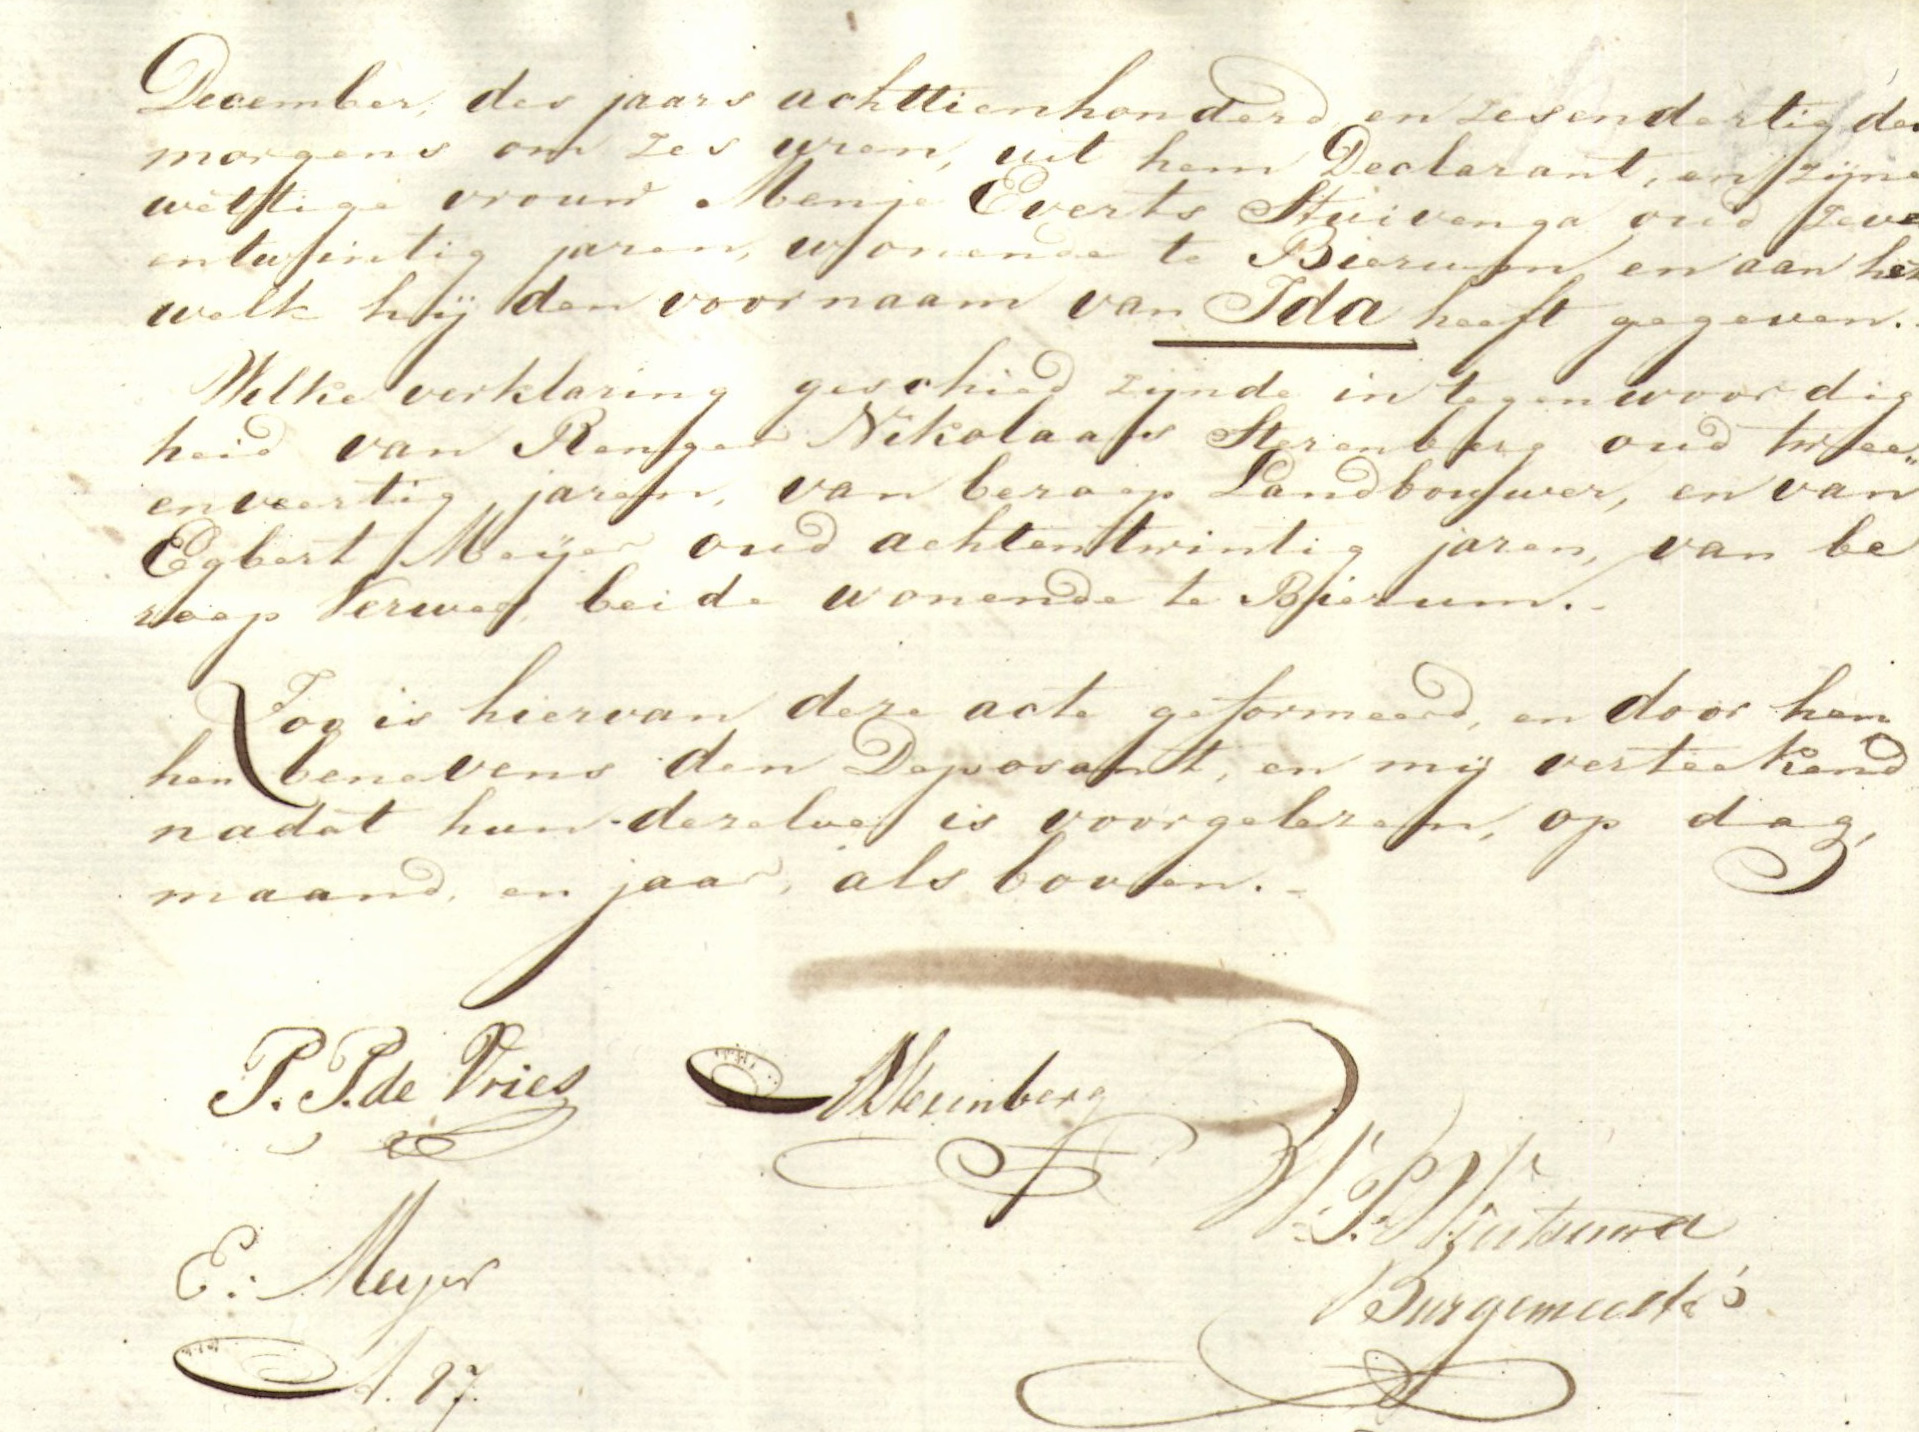 December, des jaars achttienhonderd en zesendertig des
morgens om zes uren, uit hem Declarant, en zijne
wettige vrouw Menje Everts Stuivenga oud zeve
entwintig jaren, wonende te Bierum, en aan het
welk hij den voornaam van Ida heeft gegeven.
Welke verklaring geschied zijnde in tegenwoordig
heid van Renger Nikolaas Sterenberg oud twee
enveertig jaren, van beroep Landbouwer, en van
Egbert Meijer oud achtentwintig jaren, van be
roep Verwer, beide wonende te Bierum.
Zoo is hiervan deze acte geformeerd, en door hem
hen benevens den Deposant, en mij verteekend
nadat hun dezelve is voorgelezen, op dag,
maand, en jaar, als boven.
P. P. de Vries
Sterenberg
E. Meyer
Burgemeester